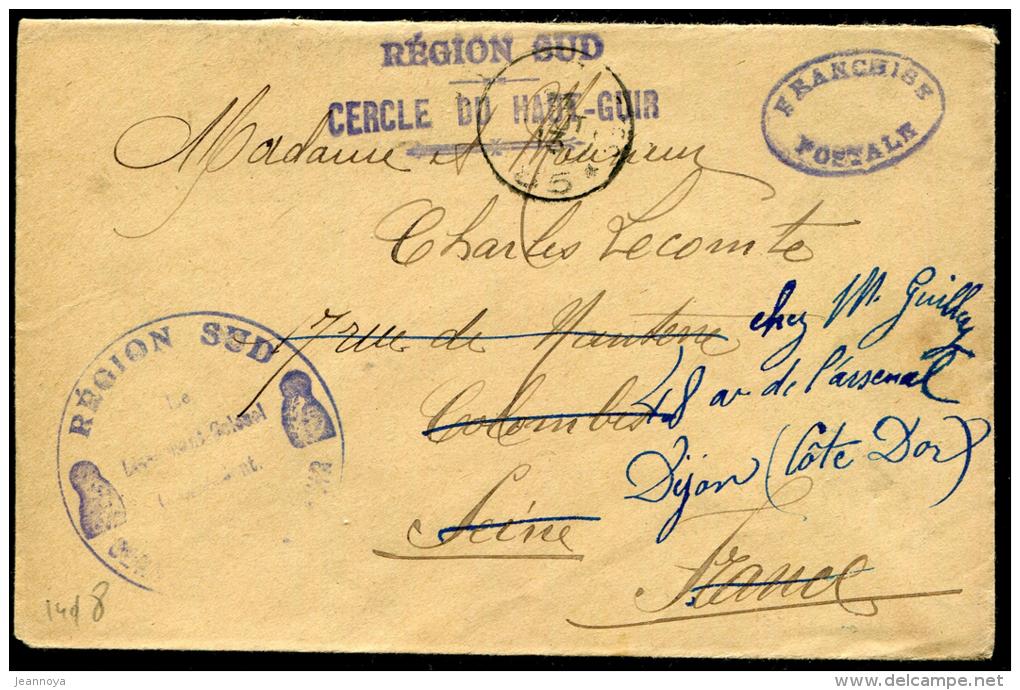 RÉGION SUD
CERCLE DU HAUT-GUIR
FRANCHISE
POSTALE
Madame et Monsieur
Charles Lecomte
7 rue de Nanterre
chez M. Guilley
48 av de l'arsenal
Colombes
Dijon (Côte D'or)
Seine
France
RÉGION SUD
Le
Lieutenant-Colonel
Commandant.
5 *
8
jeannoya
www.delcampe.net